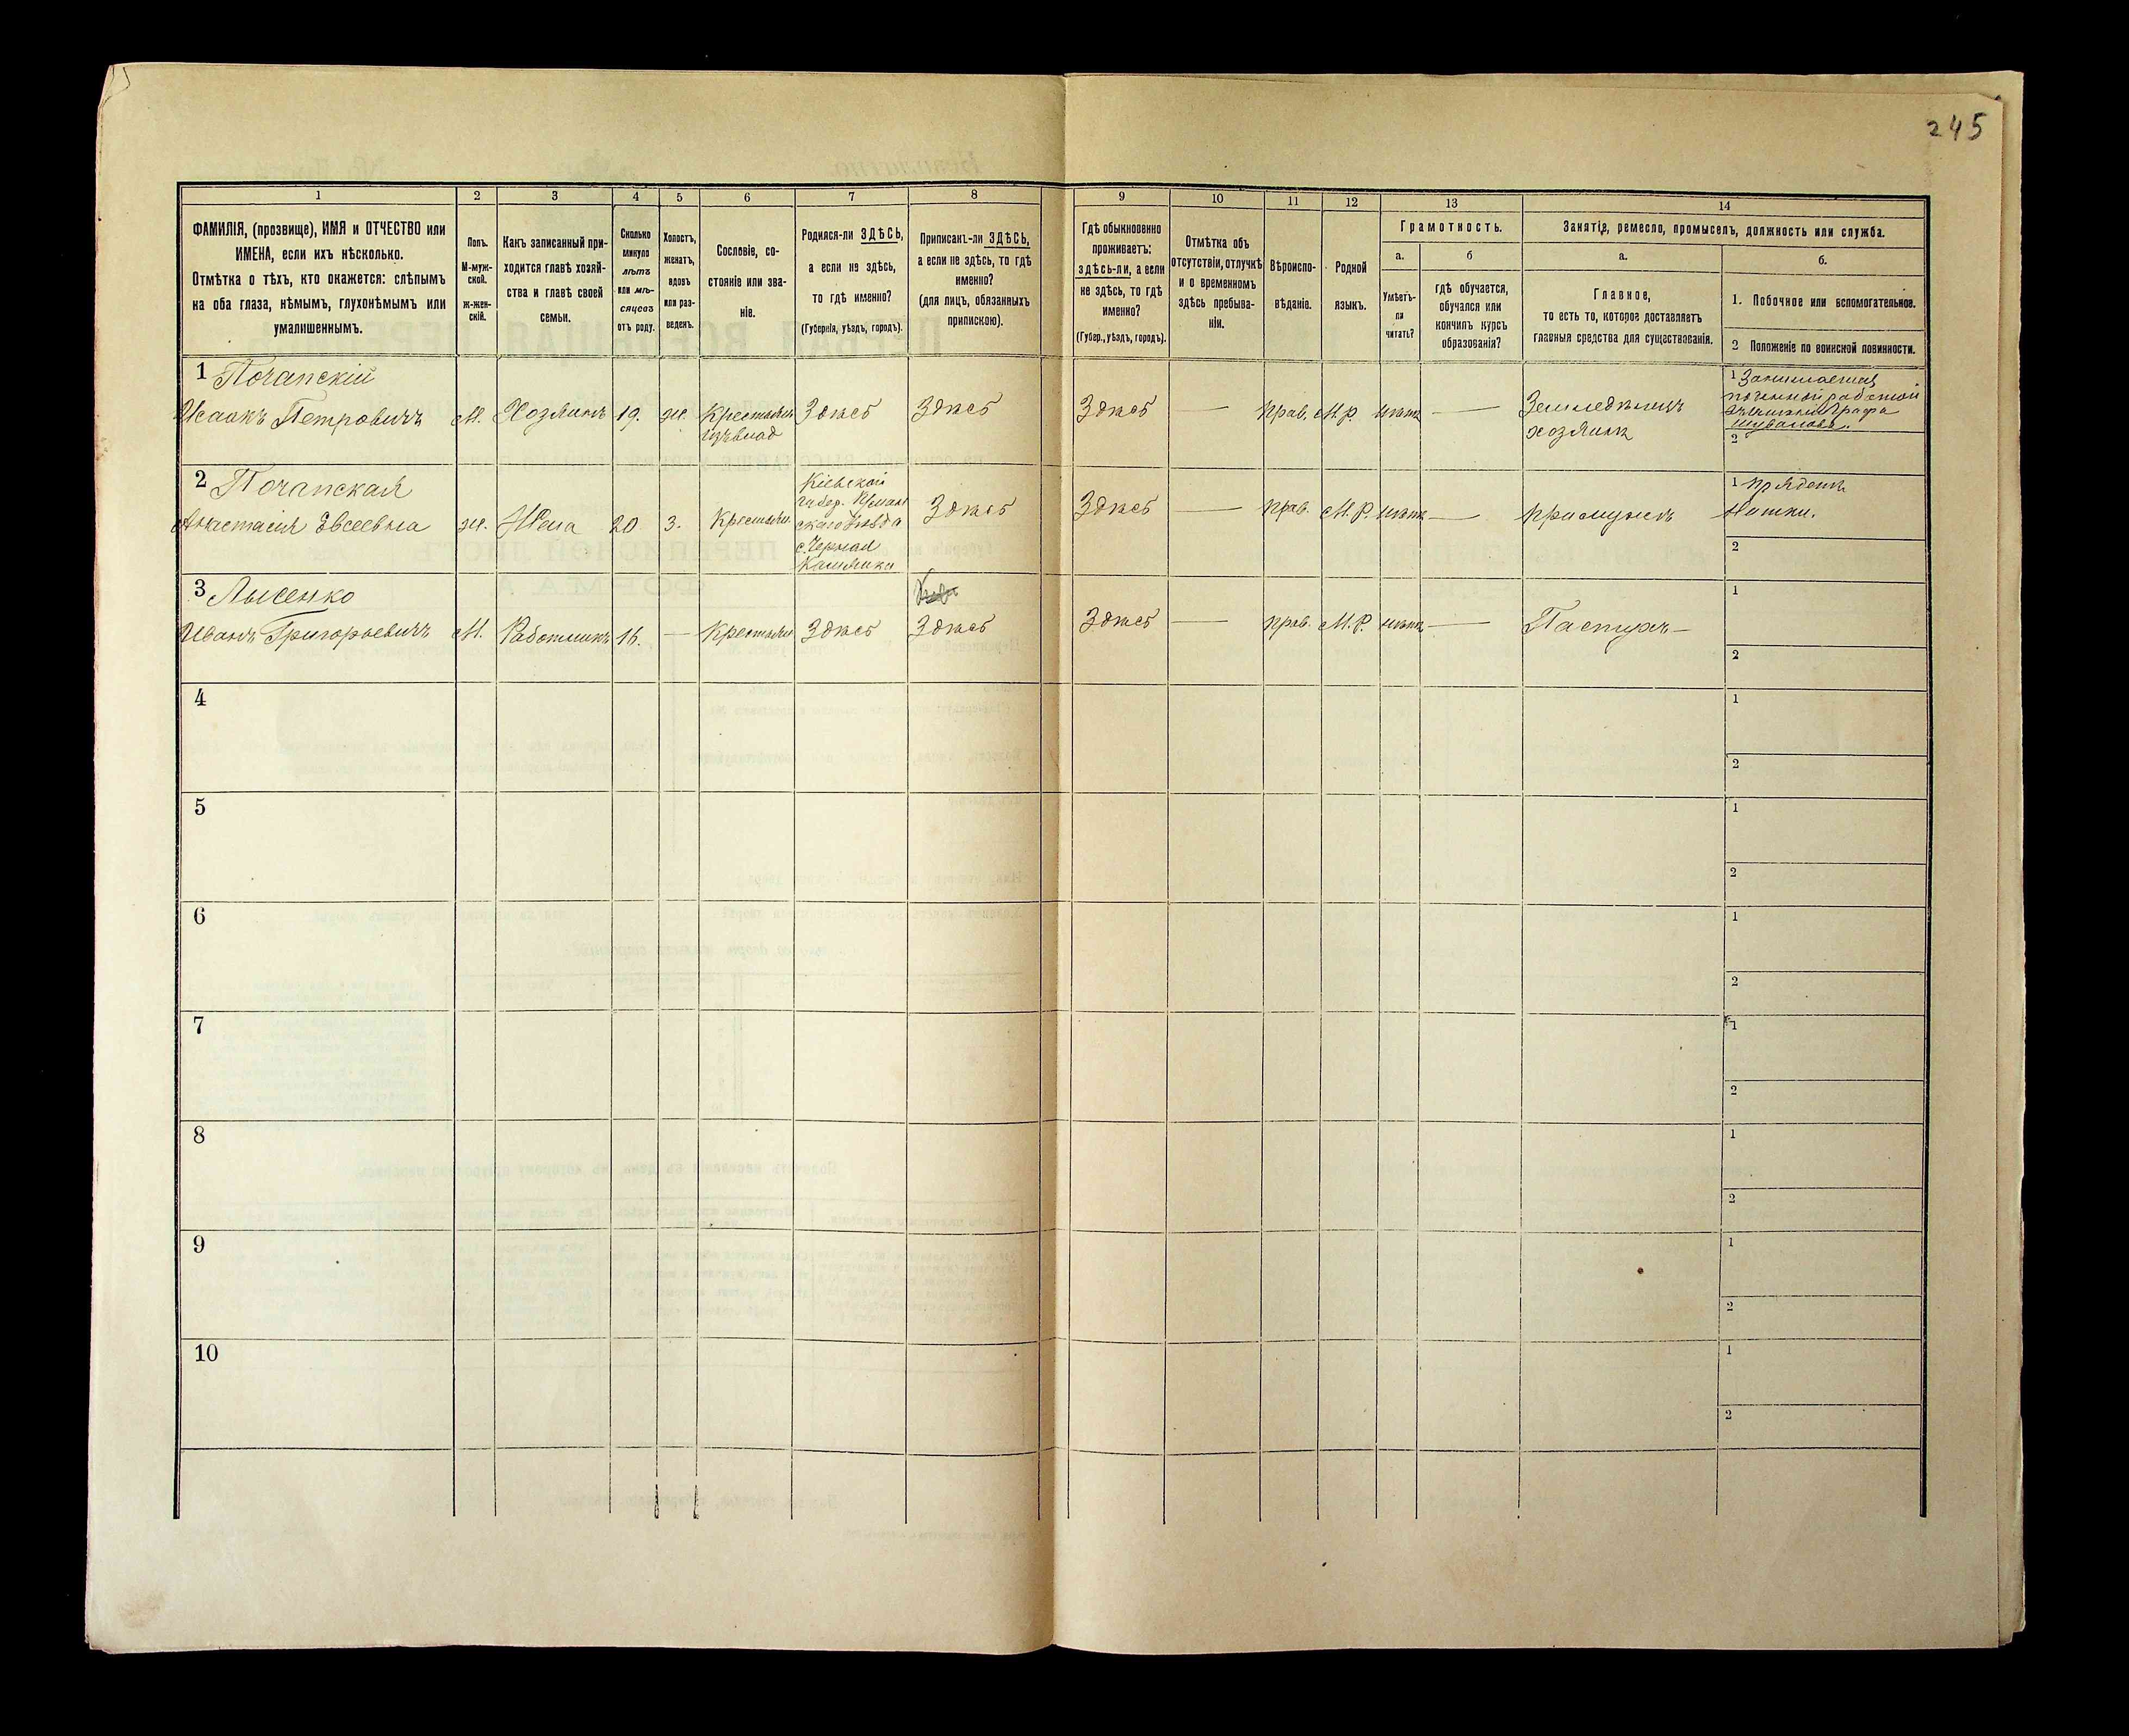 245
1 2 3 4 5 6 7 8 9 10 11 12 13 14
ФАМИЛІЯ, (прозвище), ИМЯ и ОТЧЕСТВО или
ИМЕНА, если ихъ нѣсколько.
Отмѣтка о тѣхъ, кто окажется: слѣпымъ
на оба глаза, нѣмымъ, глухонѣмымъ или
умалишеннымъ.
Полъ.
М-муж-
ской.
ж-жен-
скій.
Какъ записанный при-
ходится главѣ хозяй-
ства и главѣ своей
семьи.
Сколько
минуло
лѣтъ
или мѣ-
сяцевъ
отъ роду.
Холостъ,
женатъ,
вдовъ
или раз-
веденъ.
Сословіе, со-
стояніе или зва-
ніе.
Родился-ли ЗДѢСЬ,
а если не здѣсь,
то гдѣ именно?
(Губернія, уѣздъ, городъ).
Приписанъ-ли ЗДѢСЬ,
а если не здѣсь, то гдѣ
именно?
(для лицъ, обязанныхъ
припискою).
Гдѣ обыкновенно
проживаетъ:
здѣсь-ли, а если
не здѣсь, то гдѣ
именно?
(Губер., уѣздъ, городъ).
Отмѣтка объ
отсутствіи, отлучкѣ
и о временномъ
здѣсь пребыва-
ніи.
Вѣроиспо-
вѣданіе.
Родной
языкъ.
Грамотность.
а.
Умѣетъ-
ли
читать?
б
гдѣ обучается,
обучался или
кончилъ курсъ
образованія?
Занятіе, ремесло, промыселъ, должность или служба.
а.
Главное,
то есть то, которое доставляетъ
главныя средства для существованія.
б.
1. Побочное или вспомогательное.
2 Положеніе по воинской повинности.
1 Почапскій
Исаакъ Петровичъ
М.
Хозяинъ
19.
ж.
Крестьян.
Здѣсь
Здѣсь
Здѣсь
—
прав.
М.р.
нѣтъ
—
Земледѣлецъ
хозяинъ
1 Занимается
2
2 Почапская
Анастасія Евсеевна
ж.
Жена
20
З.
Крестьян.
Кіевской
губер. Уман
скаго Уѣзда
с. Черная
Каменка
Здѣсь
Здѣсь
—
прав.
М.Р.
нѣтъ
—
При мужѣ
1 Пряденье
Нитки.
2
3 Лысенко
Иванъ Григорьевичъ
М.
Работникъ
16.
—
Крестьян
Здѣсь
Здѣсь
Здѣсь
—
прав.
М.Р.
нѣтъ
—
Пастухъ —
1
2
4
1
2
5
1
2
6
1
2
7
1
2
8
1
2
9
1
2
10
1
2